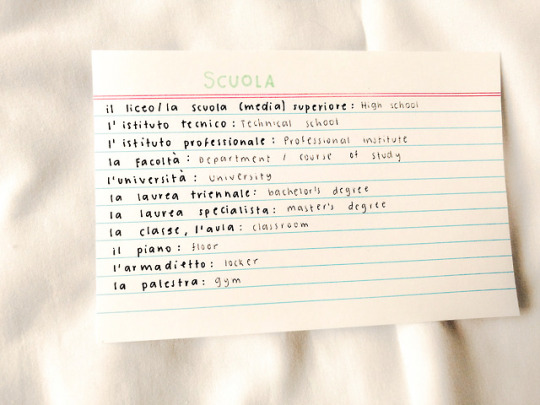 SCUOLA
il liceo/la scuola (media) superiore: High school
l'istituto tecnico: Technical school
l'istituto professionale: Professional institute
la facoltà: Department / course of study
l'università: University
la laurea triennale: bachelor's degree
la laurea specialista: master's degree
la classe, l'aula: classroom
il piano: floor
l'armadietto: locker
la palestra: gym